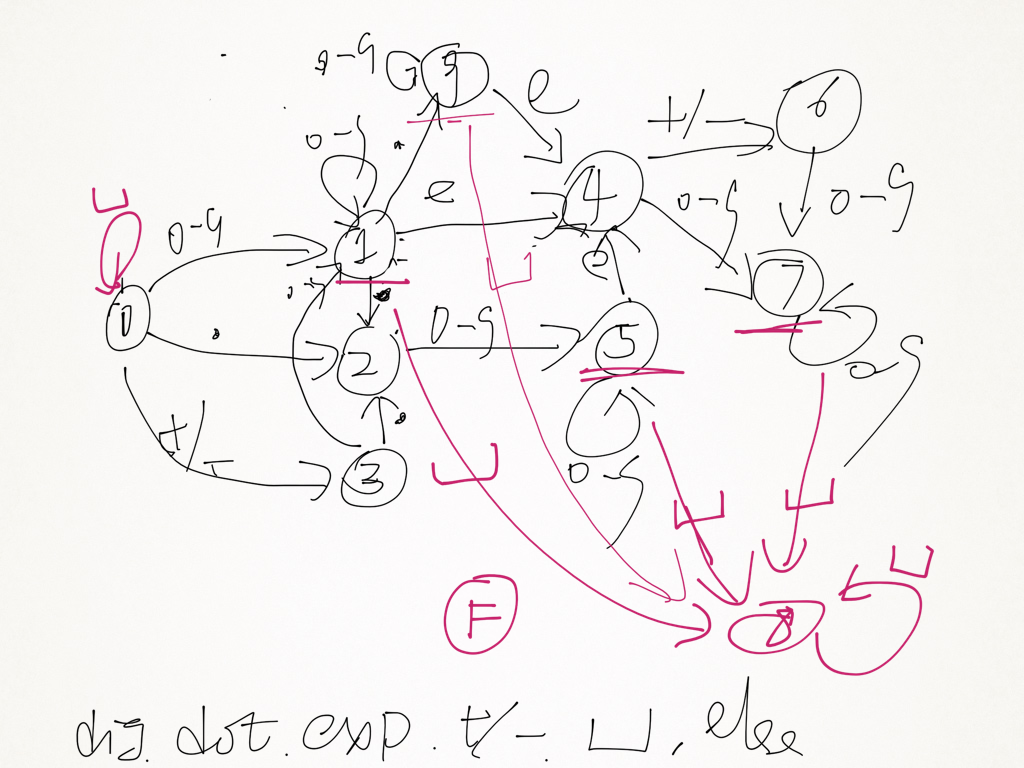 0-9
9
e
+/-
6
0-9
.
e
4
0-9
0-9
⊔
0-9
1
7
⊔
0
.
0-9
.
2
0-9
5
0-9
+/-
.
3
⊔
0-9
⊔
⊔
⊔
F
8
dig. dot. exp. +/-. ⊔. else